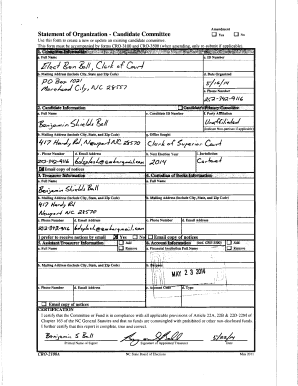 Amendment
Statement of Organization - Candidate Committee
Yes No
Use this form to create a new or update an existing candidate committee.
This form must be accompanied by forms CRO-3100 and CRO-3500 (when amending, only to submit if applicable).
1. Committee Information
a. Full Name
c. ID Number
Elect Ben Ball, Clerk of Court
b. Mailing Address (include City, State, and Zip Code)
d. Date Organized
PO Box 1021
5/16/14
Morehead City, NC 28557
e. Phone Number
252-342-9116
2. Candidate Information
Candidate's Primary Committee
a. Full Name
e. Candidate ID Number
f. Party Affiliation
Benjamin Shields Ball
Unaffiliated
b. Mailing Address (include City, State, and Zip Code)
g. Office Sought
417 Handy Rd, Newport NC 28570
Clerk of Superior Court
c. Phone Number
d. Email Address
h. Next Election Year
i. Jurisdiction
2014
Carteret
Email copy of notices
3. Treasurer Information
4. Custodian of Books Information
a. Full Name
a. Full Name
Benjamin Shields Ball
b. Mailing Address (include City, State, and Zip Code)
b. Mailing Address (include City, State, and Zip Code)
417 Handy Rd
Newport NC 28570
c. Phone Number
d. Email Address
c. Phone Number
d. Email Address
I prefer to receive notices by email
Yes No
Email copy of notices
5. Assistant Treasurer Information
Add
6. Account Information
Add
a. Full Name
Remove
a. Financial Institution Full Name
Remove
b. Mailing Address (include City, State, and Zip Code)
b. Purpose
MAY 23 2014
c. Phone Number
d. Email Address
c. Account Code
d. Type
Email copy of notices
CERTIFICATION
I certify that the Committee or Fund is in compliance with all applicable provisions of Article 22A, 22B & 22D-22M of
Chapter 163 of the NC General Statutes and that no funds are commingled with prohibited or other non-disclosed funds.
I further certify that this report is complete, true and correct.
Benjamin S Ball
Printed Name of Signer
Signature of Appointed Treasurer
Date
CRO-2100A
NC State Board of Elections
May 2011